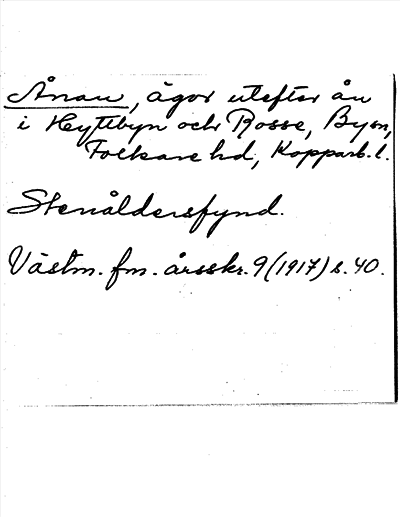 Ånau, ägor utefter ån
i Heyttbyn och Rosse, By sn,
Folkare hd, Kopparb. l.
Stenåldersfynd.
Västm. fm. årsskr. 9 (1917) s. 40.